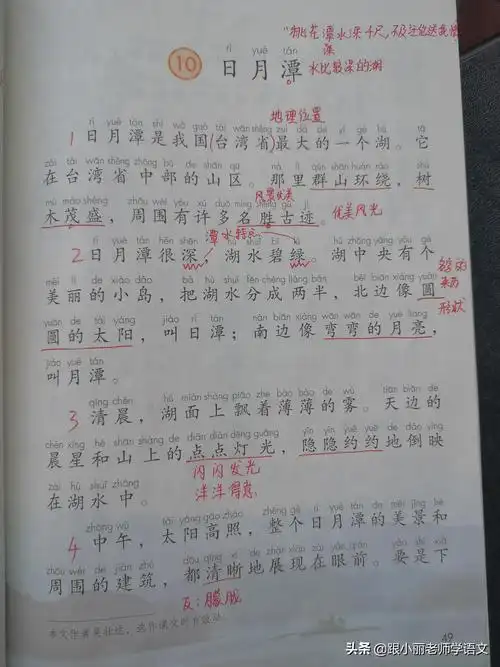 "桃花潭水深千尺,不及汪伦送我情
深
水比较深的湖
rì yuè tán
10 日月潭
地理位置
rì yuè tán shì wǒ guó tái wān shěng zuì dà de yí gè hú tā
1 日月潭是我国(台湾省)最大的一个湖。它
zài tái wān shěng zhōng bù de shān qū nà lǐ qún shān huán rào shù
在台湾省中部的山区。那里群山环绕,树
风景优美
mù mào shèng zhōu wéi yǒu xǔ duō míng shèng gǔ jì
木茂盛,周围有许多名胜古迹。优美风光
潭水特点
rì yuè tán hěn shēn hú shuǐ bì lǜ hú zhōng yāng yǒu gè
2 日月潭很深,湖水碧绿。湖中央有个
měi lì de xiǎo dǎo bǎ hú shuǐ fēn chéng liǎng bàn běi biān xiàng yuán
美丽的小岛,把湖水分成两半,北边像圆
形状
yuán de tài yáng jiào rì tán nán biān xiàng wān wān de yuè liang
圆的太阳,叫日潭;南边像弯弯的月亮,
jiào yuè tán
叫月潭。
qīng chén hú miàn shàng piāo zhe báo báo de wù tiān biān de
3 清晨,湖面上飘着薄薄的雾。天边的
chén xīng hé shān shàng de diǎn diǎn dēng guāng yǐn yǐn yuē yuē de dào yìng
晨星和山上的点点灯光,隐隐约约地倒映
闪闪发光
zài hú shuǐ zhōng
在湖水中。
洋洋得意
zhōng wǔ tài yáng gāo zhào zhěng gè rì yuè tán de měi jǐng hé
4 中午,太阳高照,整个日月潭的美景和
zhōu wéi de jiàn zhù dōu qīng xī de zhǎn xiàn zài yǎn qián yào shi xià
周围的建筑,都清晰地展现在眼前。要是下
反:朦胧
本文作者吴壮达,选作课文时有改动。
49
头条 @跟小丽老师学语文